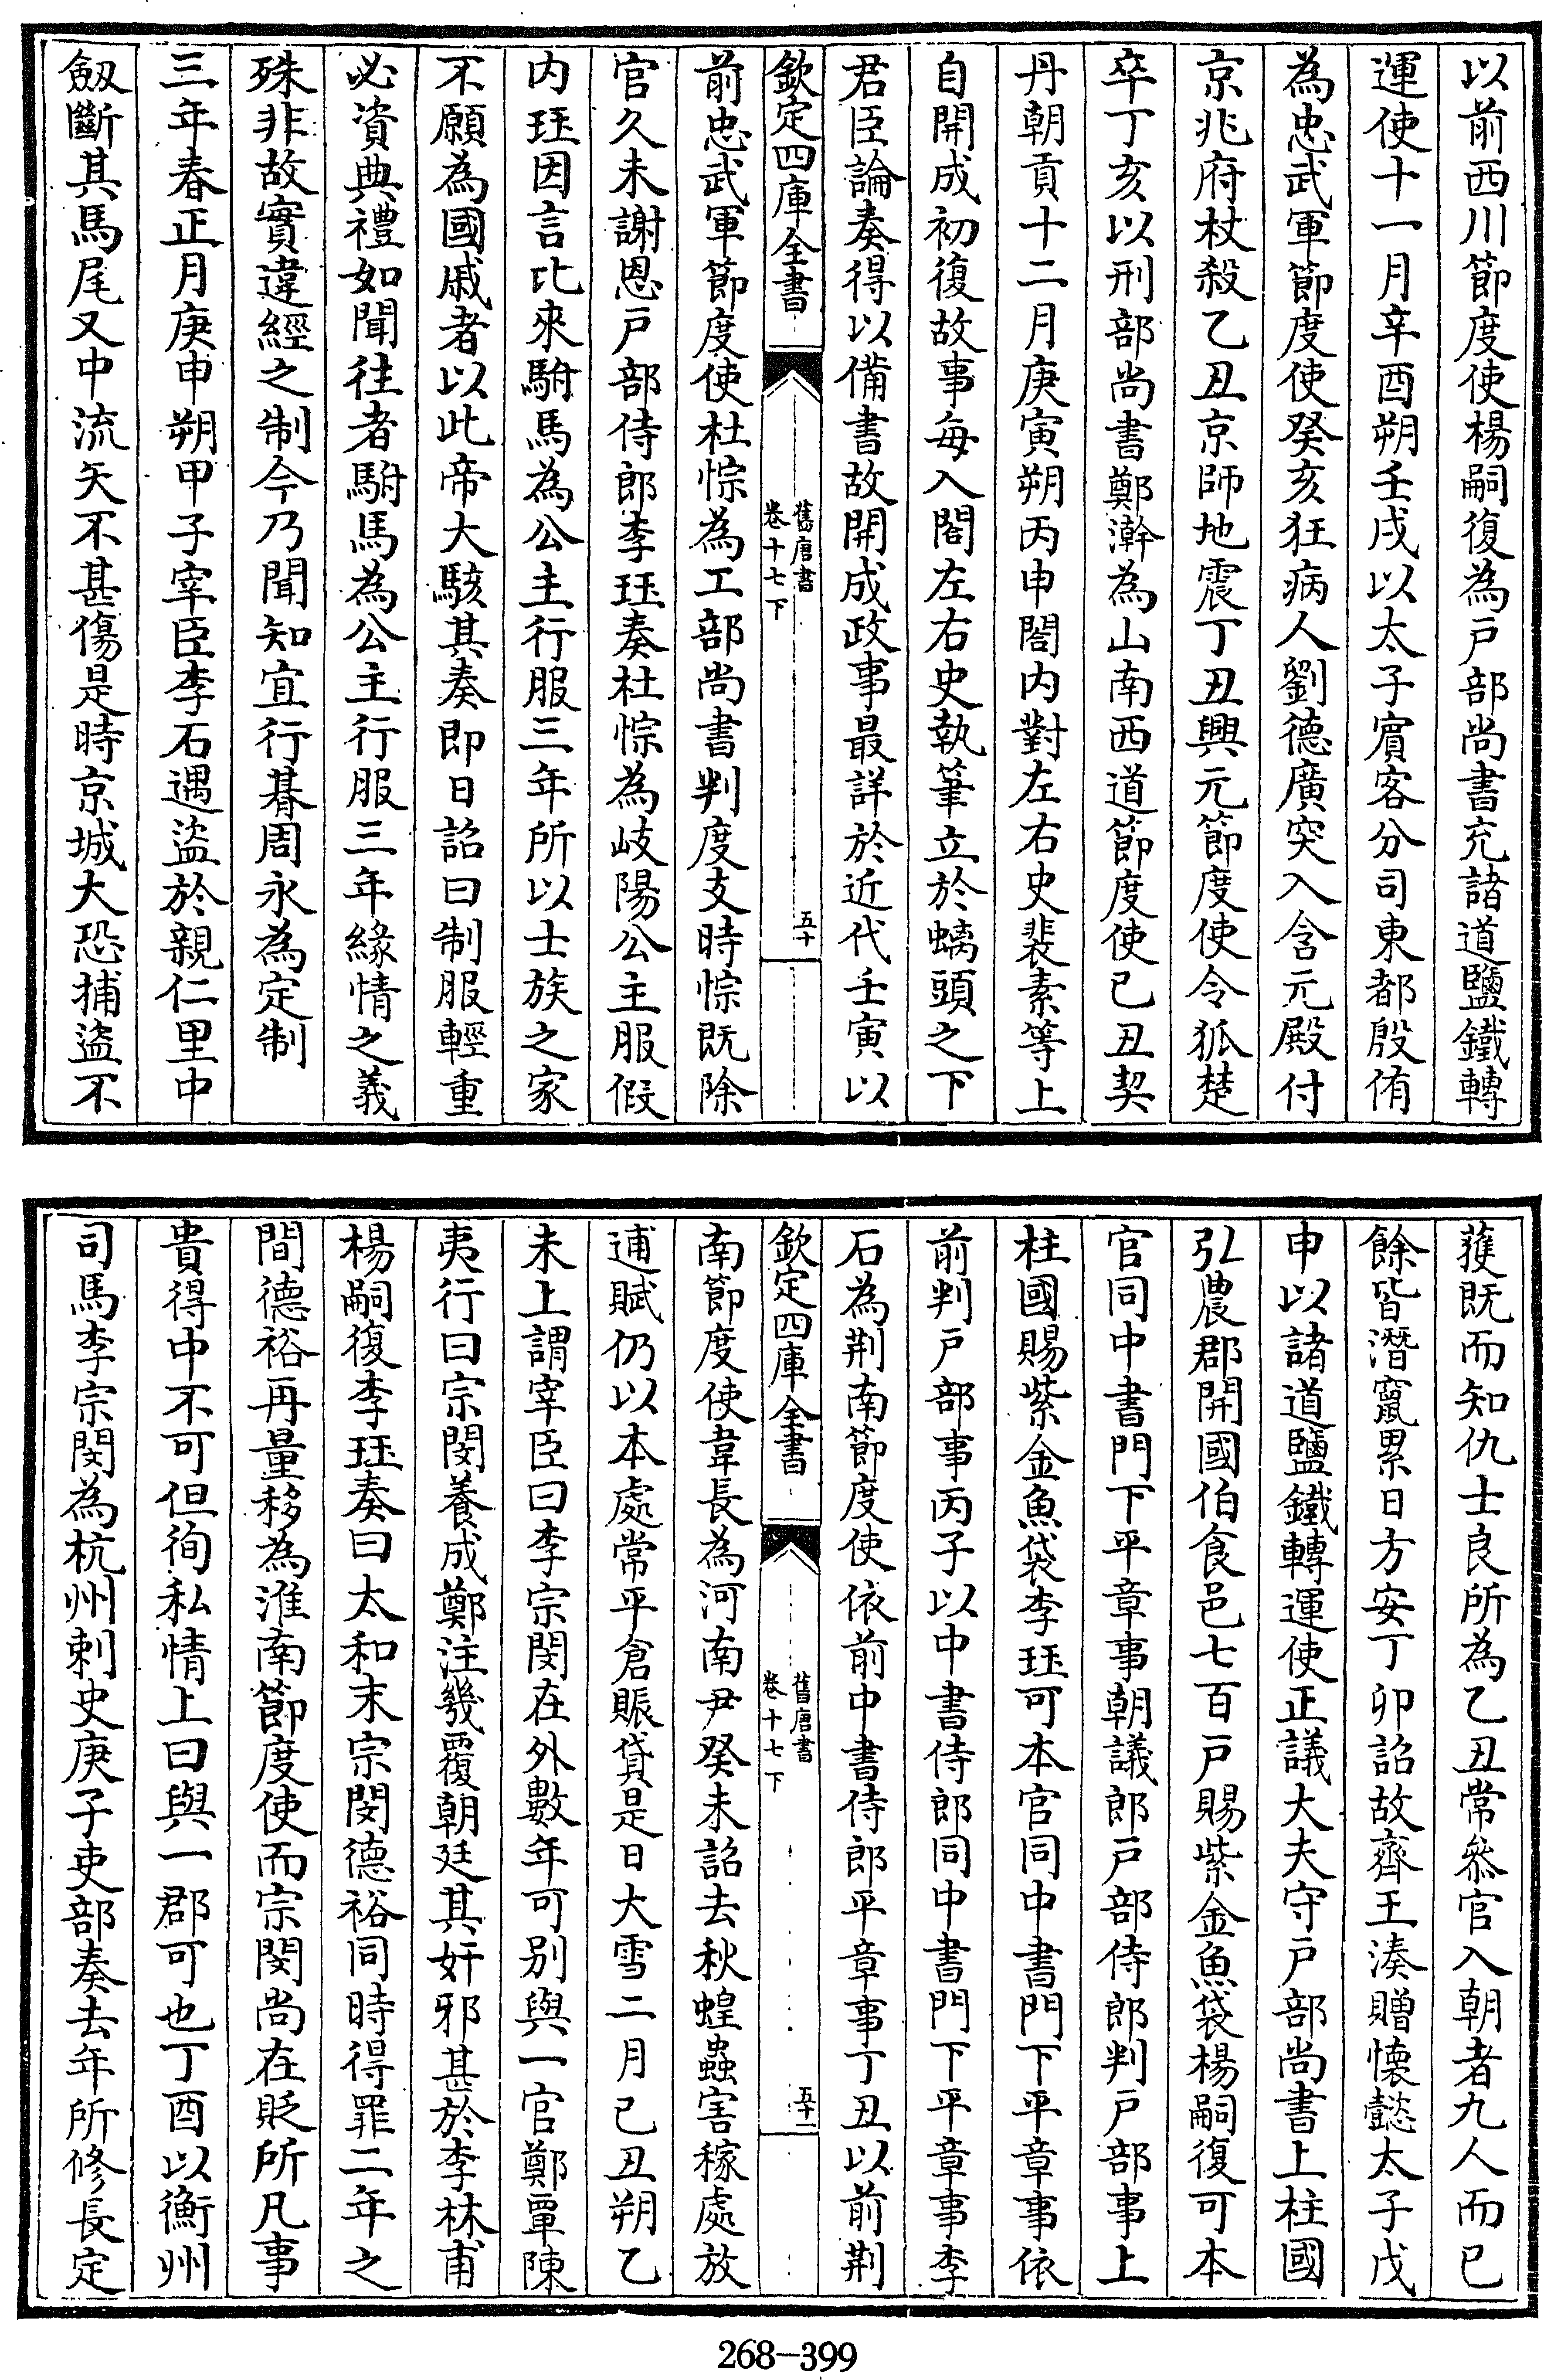 以前西川節度使楊嗣復為戶部尚書充諸道鹽鐵轉
運使十一月辛酉朔壬戌以太子賓客分司東都殷侑
為忠武軍節度使癸亥狂病人劉德廣突入含元殿付
京兆府杖殺乙丑京師地震丁丑興元節度使令狐楚
卒丁亥以刑部尚書鄭澣為山南西道節度使已丑契
丹朝貢十二月庚寅朔丙申閤內對左右史裴素等上
自開成初復故事每入閤左右史執筆立於螭頭之下
君臣論奏得以備書故開成政事最詳於近代壬寅以
欽定四庫全書
舊唐書
卷十七下
五十
前忠武軍節度使杜悰為工部尚書判度支時悰既除
官久未謝恩戶部侍郎李珏奏杜悰為岐陽公主服假
內珏因言比來駙馬為公主行服三年所以士族之家
不願為國戚者以此帝大駭其奏即日詔曰制服輕重
必資典禮如聞往者駙馬為公主行服三年緣情之義
殊非故實違經之制今乃聞知宜行朞周永為定制
三年春正月庚申朔甲子宰臣李石遇盜於親仁里中
劔斷其馬尾又中流矢不甚傷是時京城大恐捕盜不
獲既而知仇士良所為乙丑常參官入朝者九人而已
餘皆潛竄累日方安丁卯詔故齊王湊贈懷懿太子戊
申以諸道鹽鐵轉運使正議大夫守戶部尚書上柱國
弘農郡開國伯食邑七百戶賜紫金魚袋楊嗣復可本
官同中書門下平章事朝議郎戶部侍郎判戶部事上
柱國賜紫金魚袋李珏可本官同中書門下平章事依
前判戶部事丙子以中書侍郎同中書門下平章事李
石為荆南節度使依前中書侍郎平章事丁丑以前荆
欽定四庫全書
舊唐書
卷十七下
五十一
南節度使韋長為河南尹癸未詔去秋蝗蟲害稼處放
逋賦仍以本處常平倉賑貸是日大雪二月已丑朔乙
未上謂宰臣曰李宗閔在外數年可别與一官鄭覃陳
夷行曰宗閔養成鄭注幾覆朝廷其奸邪甚於李林甫
楊嗣復李珏奏曰太和末宗閔德裕同時得罪二年之
間德裕再量移為淮南節度使而宗閔尚在貶所凡事
貴得中不可但徇私情上曰與一郡可也丁酉以衡州
司馬李宗閔為杭州刺史庚子吏部奏去年所修長定
268-399